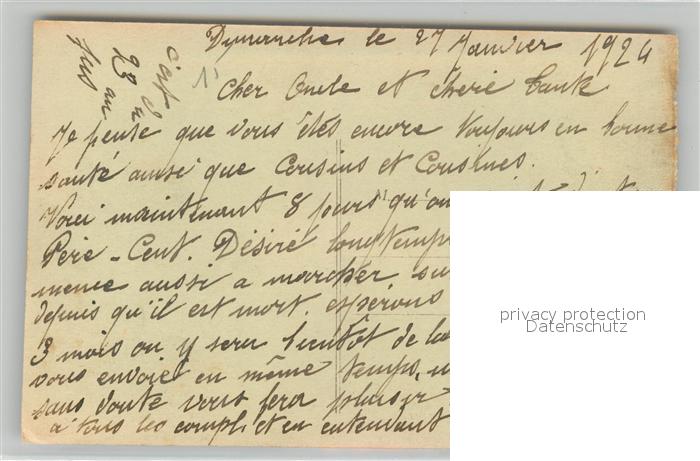 Dimanche le 27 Janvier 1924
c'est
23 au
1)
Cher Oncle et chère Tante
Je pense que vous êtes encore toujours en bonne
santé ainsi que Cousins et Cousines.
Voici maintenant 8 jours qu'on
Père-Cent. Désiré longtemps
mence aussi a marcher, su
depuis qu'il est mort. espérons
3 mois on y sera bientôt de la
vous envoie en même temps, u
sans doute vous fera plaisir
à tous les compli et en entendant
privacy protection
Datenschutz